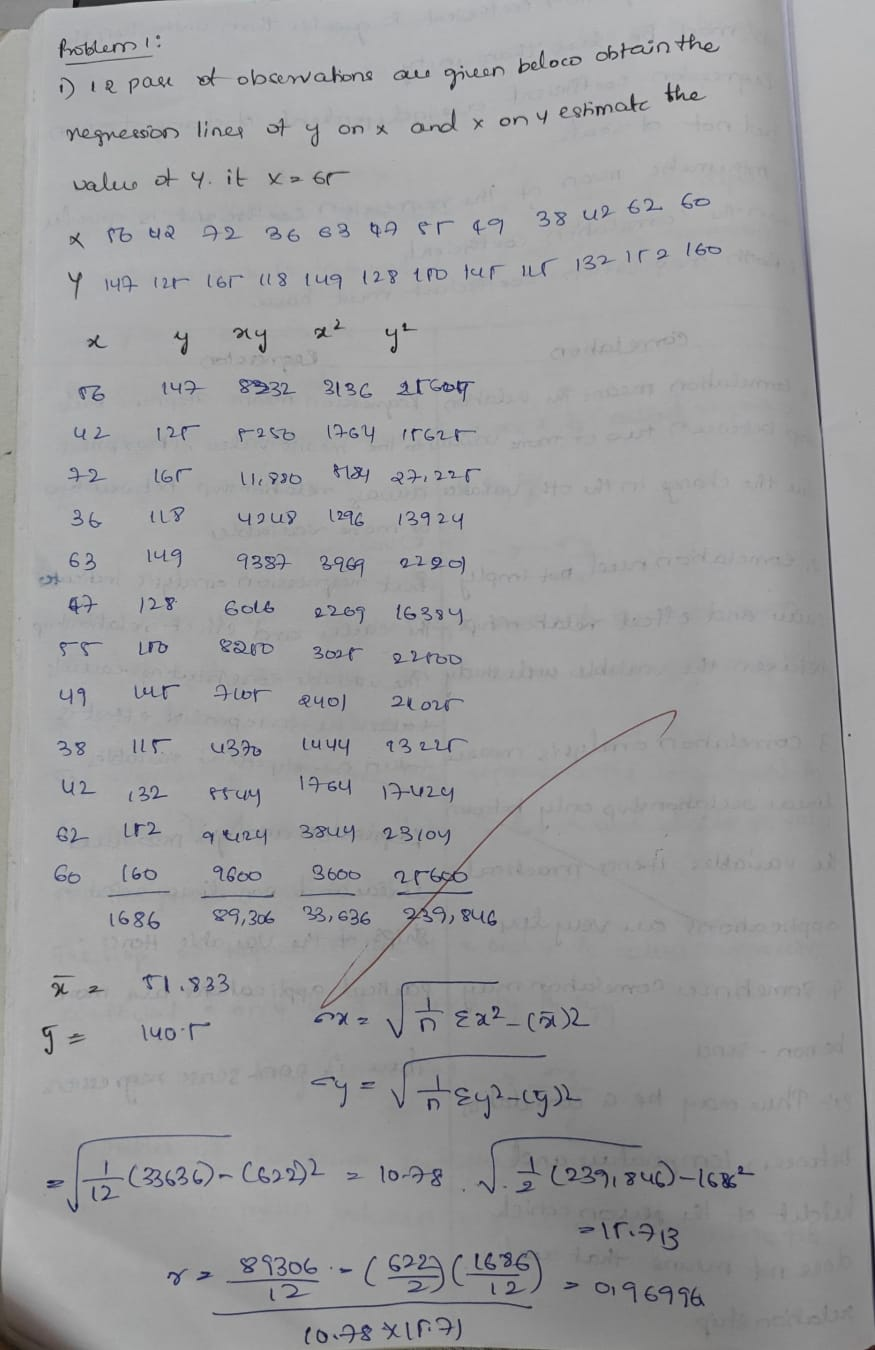 Problem 1:
i) 12 pair of observations are given below obtain the
regression lines of y on x and x on y estimate the
value of y. if x = 65
x 56 42 72 36 63 47 55 49 38 42 62 60
Y 147 125 165 118 149 128 150 145 115 132 152 160
x y xy x² y²
56 147 8232 3136 21609
42 125 5250 1764 15625
72 165 11,880 5184 27,225
36 118 4248 1296 13924
63 149 9387 3969 22201
47 128 6016 2209 16384
55 150 8250 3025 22500
49 145 7105 2401 21025
38 115 4370 1444 13225
42 132 5544 1764 17424
62 152 9424 3844 23104
60 160 9600 3600 25600
1686 89,306 33,636 239,846
x̄ = 51.833
ȳ = 140.5
σx = √1/n Σx² - (x̄)2
σy = √1/n Σy² - (ȳ)2
= √1/12 (33636) - (622)2 = 10.78 . √. 1/2 (239,846) - 1686²
= 15.713
r = 89306/12 - (622/2) (1686/12) / 10.78 × 15.71 = 0.96996